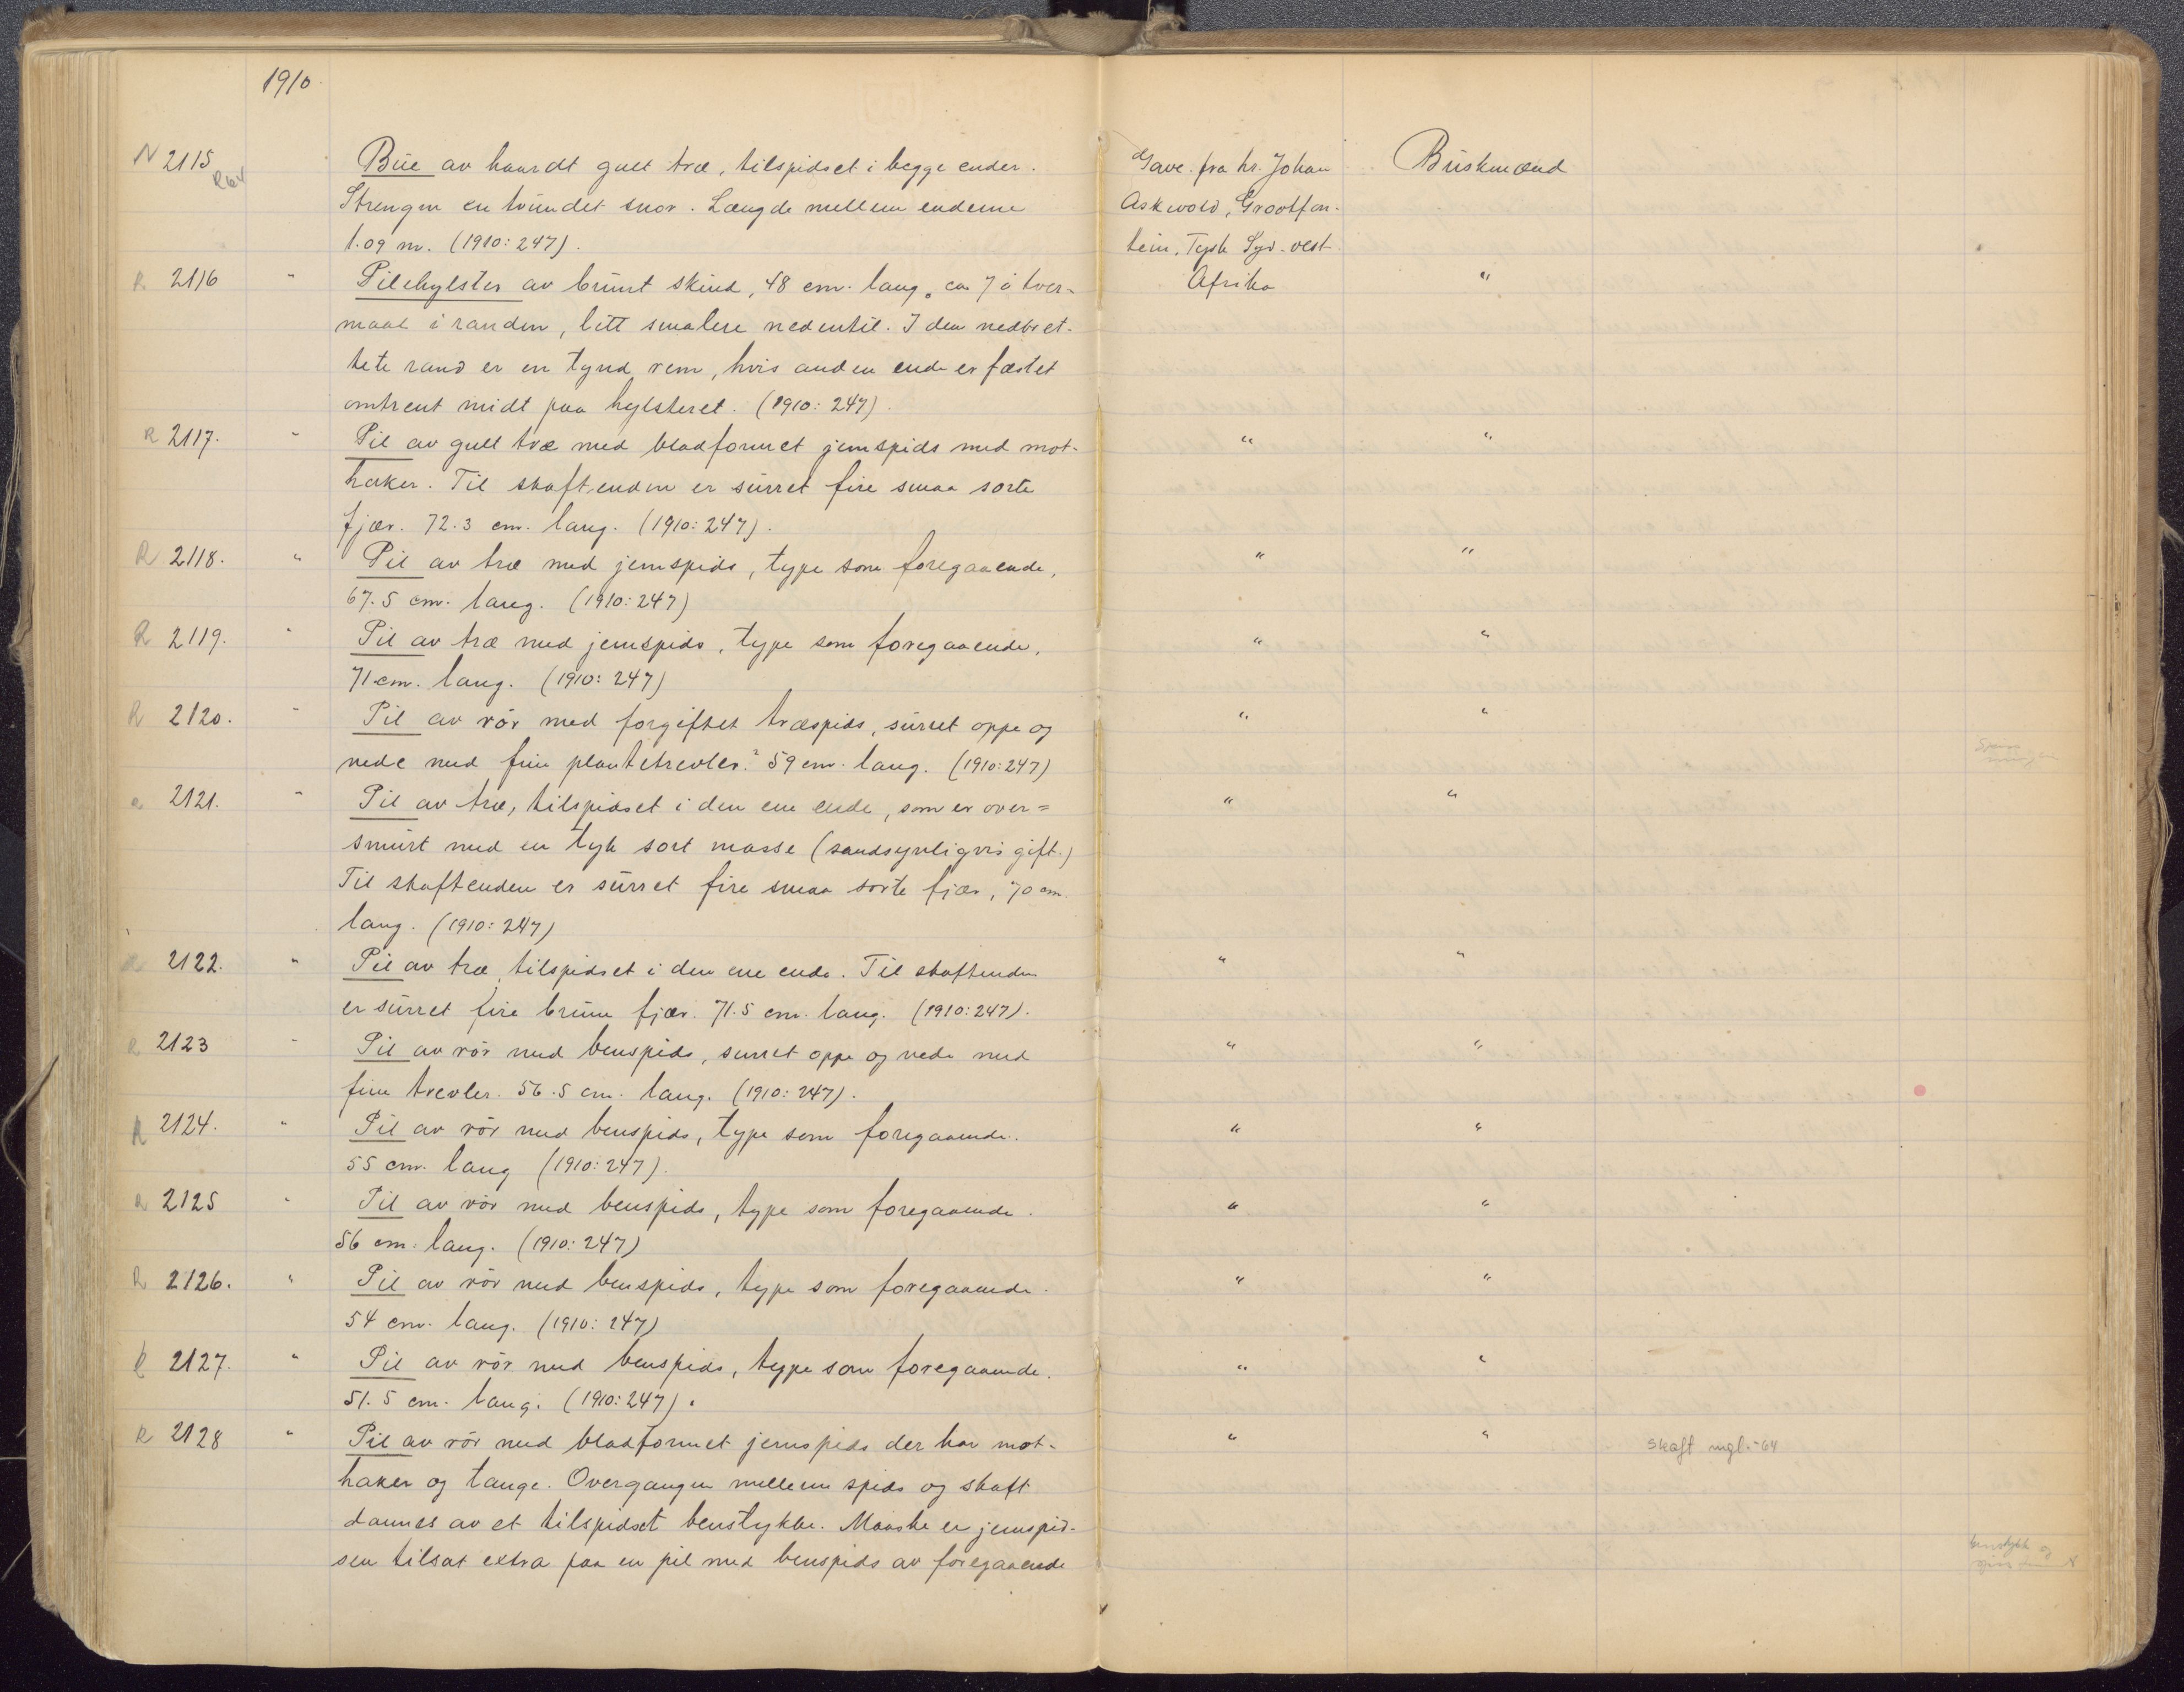 1910.
N 2115
Bue av haardt gult træ, tilspidset i begge ender.
Gave fra hr. Johan
Buskmænd
Strengen en tvundet snor. Længde mellem enderne
Askevold, Grootfon-
1.09 m. (1910:247).
tein, Tysk Syd-vest
R 2116 " Pilehylster av brunt skind, 48 cm. lang, ca 7 i tver-
Afrika "
maal i randen, litt smalere nedentil. I den nedbret-
tete rand er en tynd rem, hvis anden ende er fæstet
omtrent midt paa hylsteret. (1910:247).
R 2117. " Pil av gult træ med bladformet jernspids med mot- " "
haker. Til skaftenden er surret fire smaa sorte
fjær. 72.3 cm. lang. (1910:247).
R 2118. " Pil av træ med jernspids, type som foregaaende, " "
67.5 cm. lang. (1910:247)
R 2119. " Pil av træ med jernspids, type som foregaaende, " "
71 cm. lang. (1910:247)
R 2120. " Pil av rör med forgiftet træspids, surret oppe og " "
nede med fine plantetrevler? 59 cm. lang. (1910:247)
R 2121. " Pil av træ, tilspidset i den ene ende, som er over= " "
smurt med en tyk sort masse (sandsynligvis gift.)
Til skaftenden er surret fire smaa sorte fjær, 70 cm.
lang. (1910:247)
R 2122. " Pil av træ, tilspidset i den ene ende. Til skaftenden " "
er surret fire brune fjær. 71.5 cm. lang. (1910:247).
R 2123 " Pil av rör med benspids, surret oppe og nede med " "
fine trevler. 56.5 cm. lang. (1910:247).
R 2124. " Pil av rör med benspids, type som foregaaende. " "
55 cm. lang (1910:247).
R 2125 " Pil av rör med benspids, type som foregaaende. " "
56 cm. lang. (1910:247)
R 2126. " Pil av rör med benspids, type som foregaaende. " "
54 cm. lang. (1910:247)
R 2127. " Pil av rör med benspids, type som foregaaende. " "
51.5 cm. lang. (1910:247).
R 2128 " Pil av rör med bladformet jernspids der har mot- " " skaft mgl. -64
haker og tange. Overgangen mellem spids og skaft
dannes av et tilspidset benstykke. Maaske er jernspid-
sen tilsat extra paa en pil med benspids av foregaaende
benstykk og